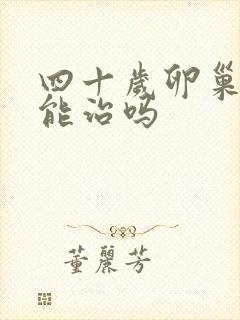 四十歲卵巢
能治吗
董麗芳